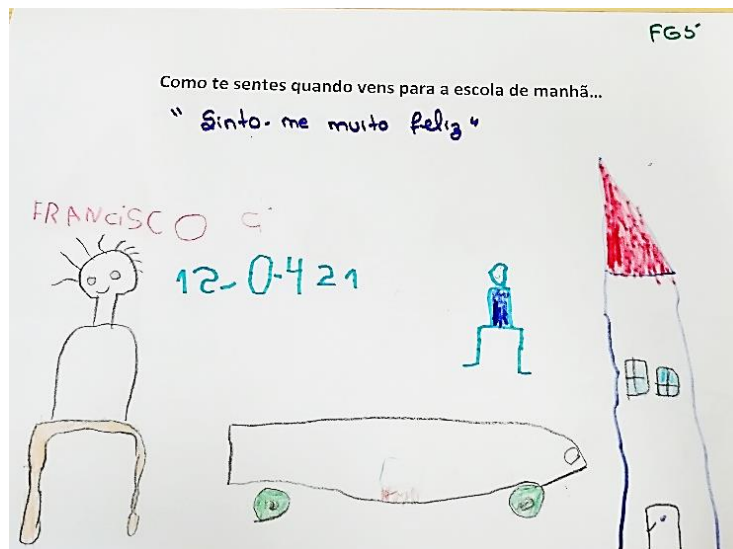 FG5
Como te sentes quando vens para a escola de manhã...
" Sinto-me muito feliz "
FRANCISCO G
12-0421